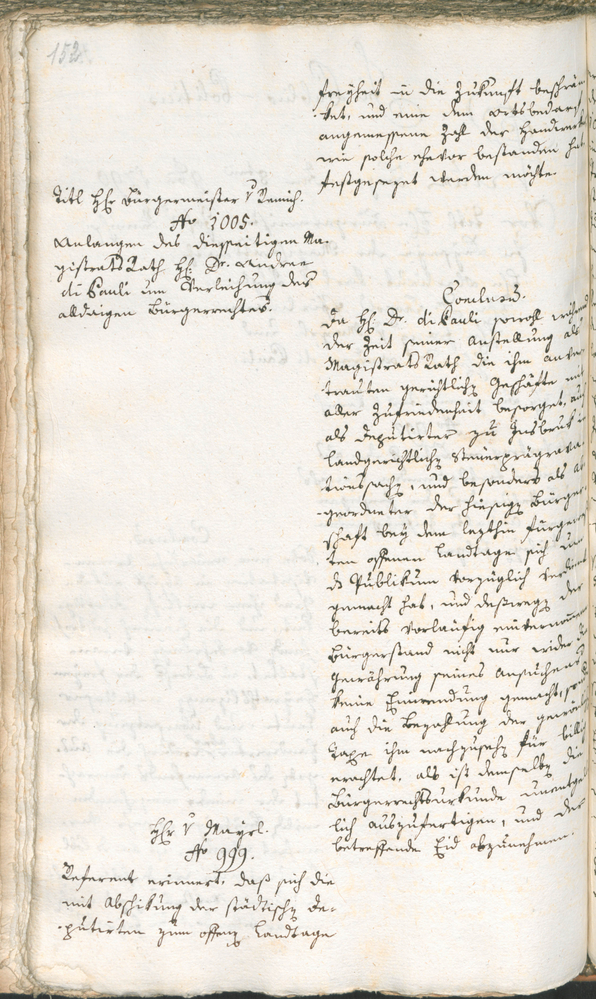 152.
freyheit in die Zukunft beschrän
ket, und eine dem Ortsbedarf
angemessene Zahl der Handwerker
wie solche ehevor bestanden hat
festgesezet werden möchte.
Titl Hh Bürgermeister v Remich.
No 1005.
Anlangen des diesseitigen Ma-
gistrats Rath Hh. Dr. Andree
di Pauli um Verleihung des
alldasigen Bürgerrechtes.
Conclusum.
Da Hh Dr. di Pauli sowohl während
der Zeit seiner Anstellung als
Magistrats Rath die ihm anver-
trauten gerichtlichen Geschäfte mit
aller Zufriedenheit besorget, auch
als Deputirter zu Insbruck in
landgerichtlichen
und besonders als Ab-
geordneter der hiesigen Bürger-
schaft bey dem lezthin
ten offenen Landtage sich um
das Publikum vorzüglich verdient
gemacht hat, und deßwegen der
bereits vorläufig einvernommene
Bürgerstand nicht nur wider die
Gewährung seines Ansuchens
keine Einwendung gemacht, sondern
auch die Bezahlung der gewöhnlichen
Taxe ihm nachzusehen für billig
erachtet, als ist demselben die
Bürgerrechtsurkunde unentgelt-
lich auszufertigen, und der
betreffende Eid abzunehmen.
Hhr v Mayrl.
No 999.
Referent erinnert, daß sich die
mit Abschikung der städtischen De-
putirten zum offenen Landtage